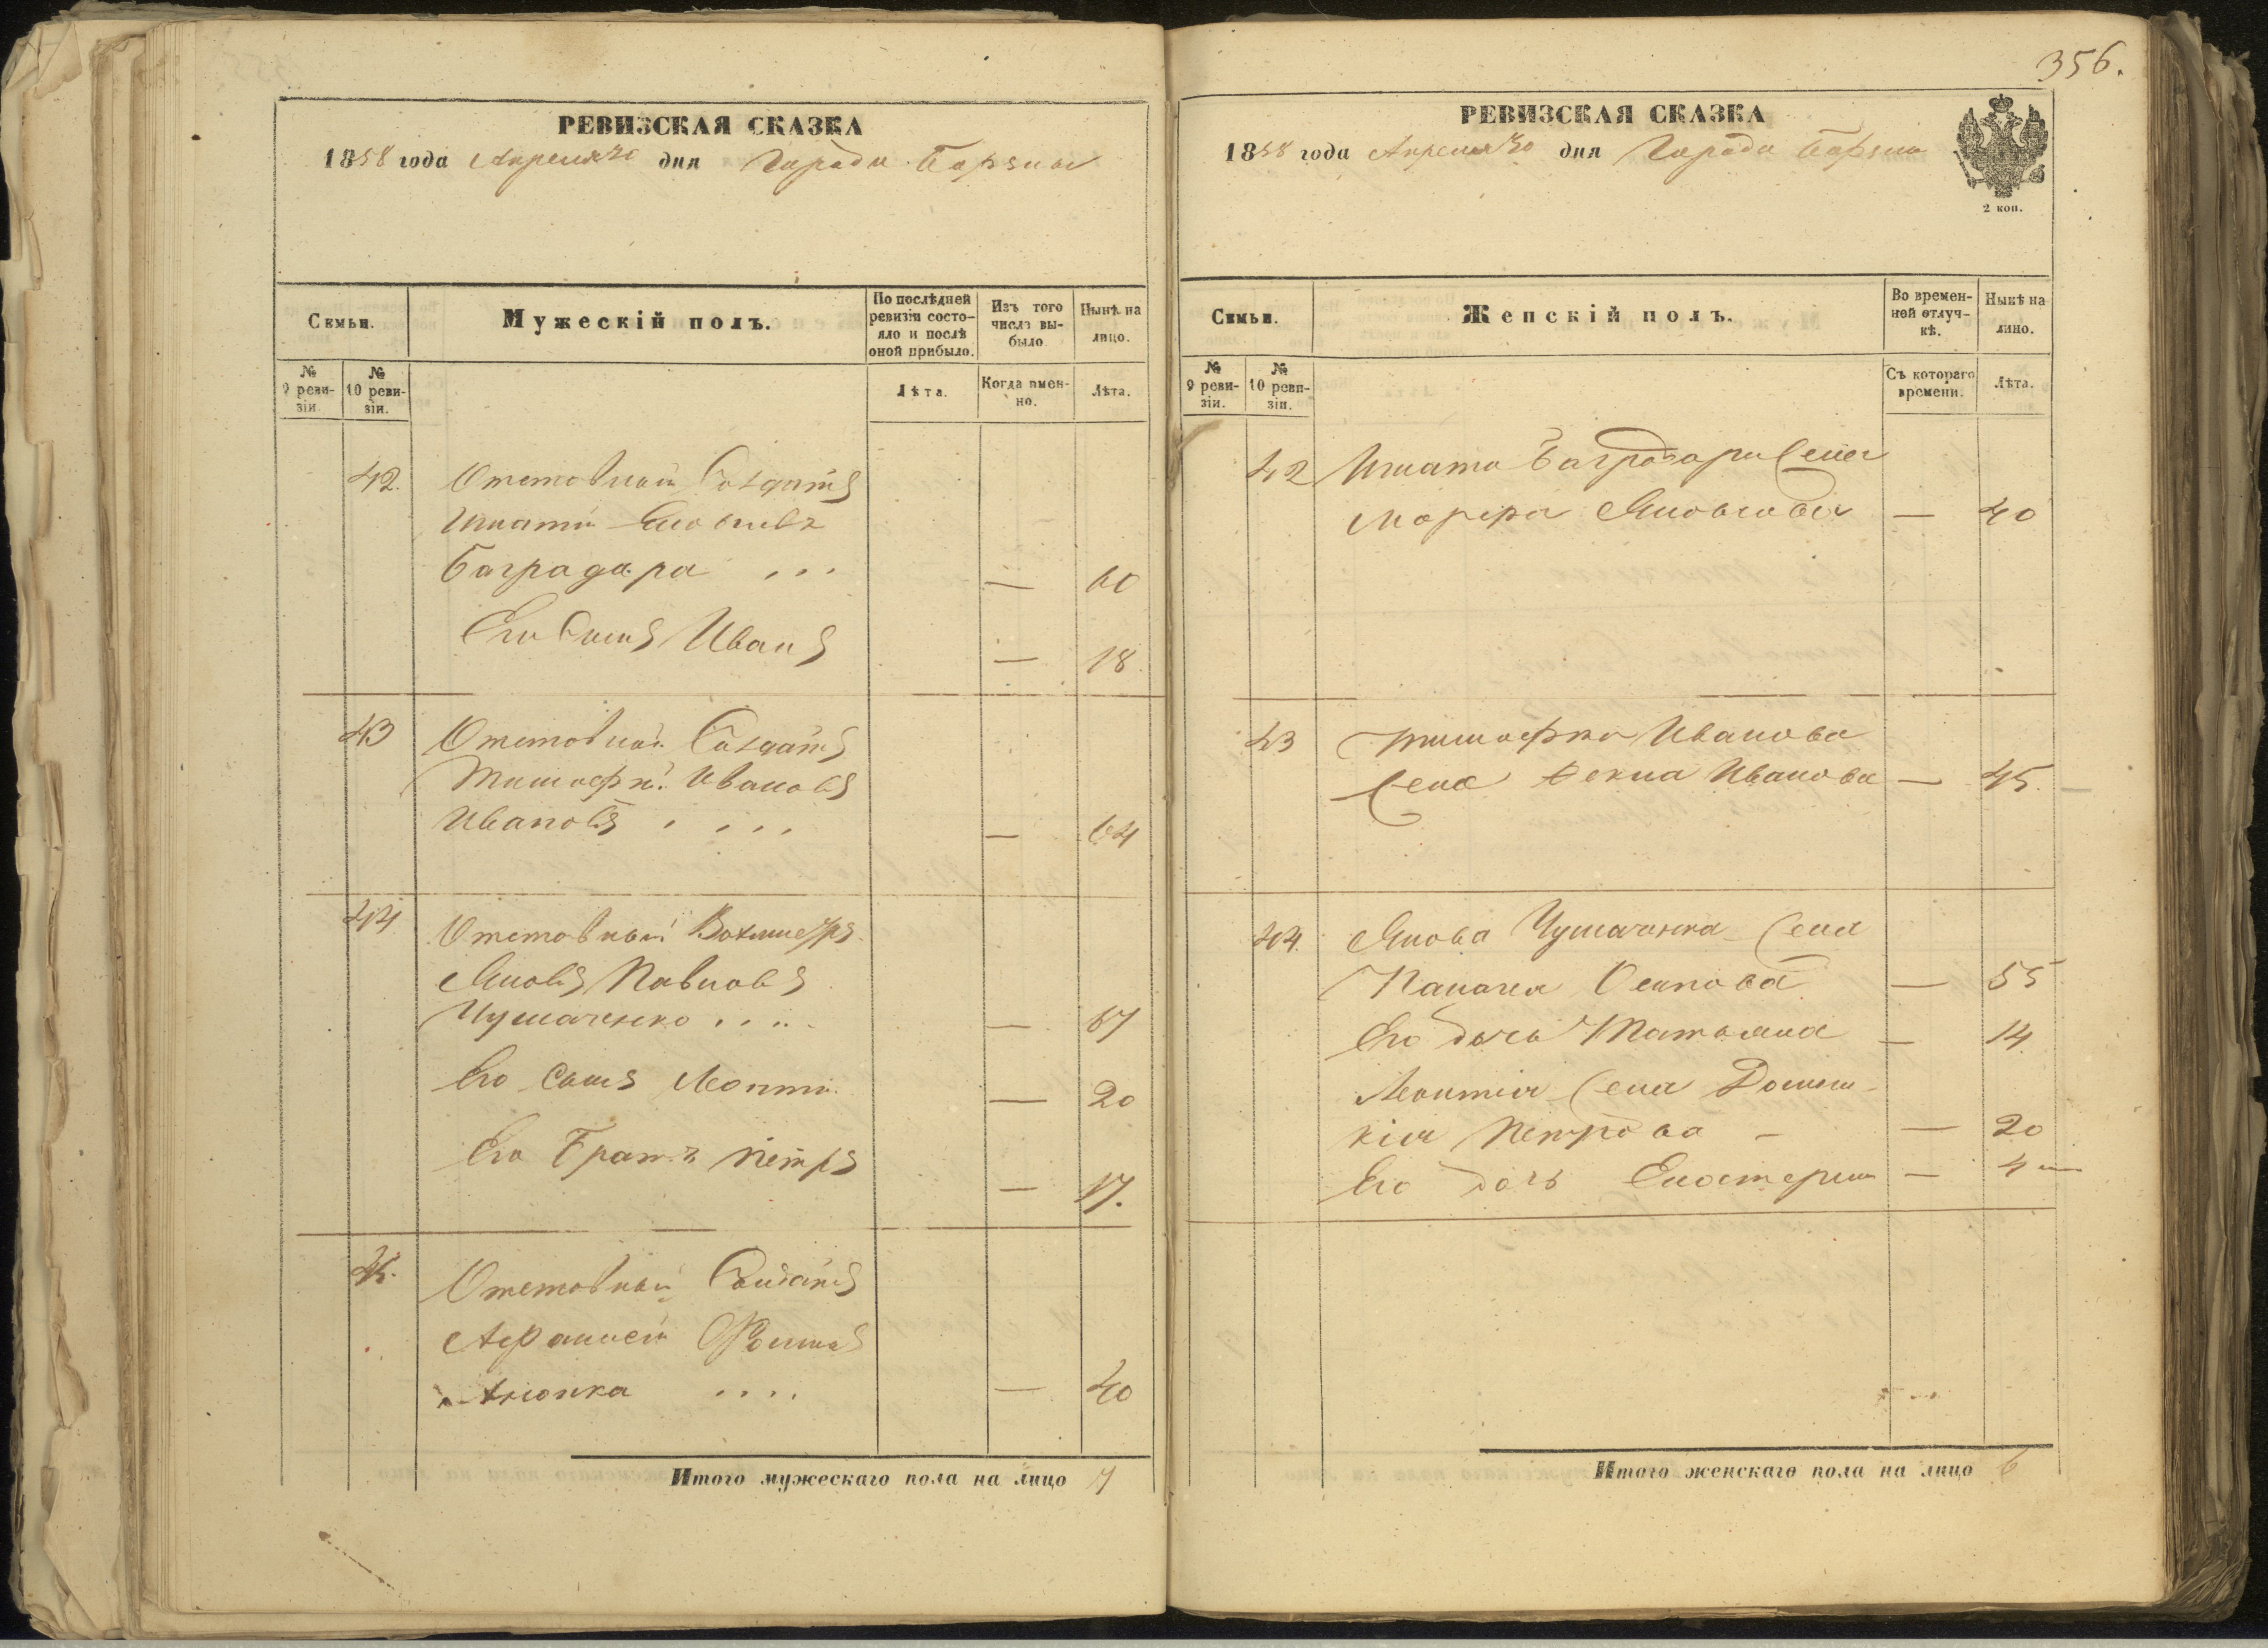 РЕВИЗСКАЯ СКАЗКА
1858 года Апреля 30 дня Города Борзны
Семьи.
Мужескій полъ.
По послѣдней ревизіи состояло и послѣ оной прибыло.
Изъ того числа выбыло
Нынѣ на лицо.
№ 9 ревизіи.
№ 10 ревизіи.
Лѣта.
Когда именно.
Лѣта.
42. Отставной Солдатъ
Игнатій Яковлевъ
Баградара ... — 60
Его Сынъ Иванъ — 18
43 Отставной Солдатъ
Тимофѣй Ивановъ
Ивановъ .... — 64
44 Отставный Вахмистръ
Яковъ Павловъ
Чумаченко .... — 67
Его Сынъ Леонтій — 20
Его Братъ Петръ — 17.
45. Отставный Солдатъ
.... — 40
Итого мужескаго пола на лицо 7
356.
РЕВИЗСКАЯ СКАЗКА
1858 года Апреля 30 дня Города Борзны
2 коп.
Семьи.
Женскій полъ.
Во временной отлучкѣ.
Нынѣ на лицо.
№ 9 ревизіи.
№ 10 ревизіи.
Съ котораго времени.
Лѣта.
42 Игната Баградары Жена
Марфа Яковлева — 40
43 Тимофея Иванова
Жена Фекла Иванова — 45.
44. Якова Чумаченка Жена
Осипова — 55
Его дочь Татьяна — 14
Леонтія Жена Домникія Петрова — — 20
Его дочь Екатерина — 4
Итого женскаго пола на лицо 6